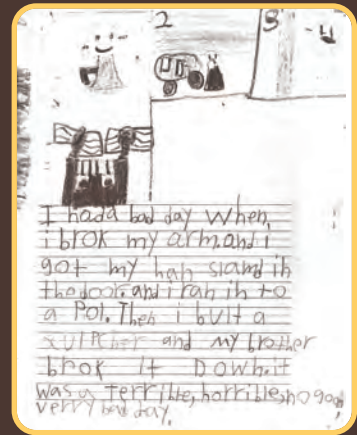 2
3
I had a bad day when,
i brok my arm. and i
got my hah slamd in
the door. and i rah in to
a Pol. Then i bult a
sculpcher and my brother
brok it Down. it
was a terrible, horrible, no good
verry bad day.